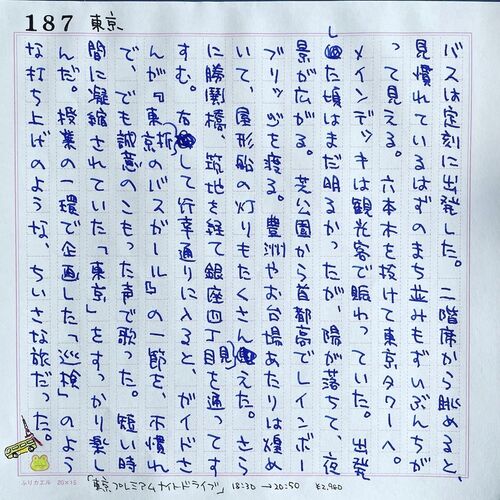 187 東京
バスは定刻に出発した。二階席から眺めると、
見慣れているはずのまち並みもずいぶんちが
って見える。六本木を抜けて東京タワーへ。
メインデッキは観光客で賑わっていた。出発
した頃はまだ明るかったが、陽が落ちて、夜
景が広がる。芝公園から首都高でレインボー
ブリッジを渡る。豊洲やお台場あたりは煌め
いて、屋形船の灯りもたくさん見えた。さら
に勝鬨橋、築地を経て銀座四丁目を通ってす
すむ。右折して行幸通りに入ると、ガイドさ
んが『東京のバスガール』の一節を、不慣れ
で、でも誠意のこもった声で歌った。短い時
間に凝縮されていた「東京」をすっかり楽し
んだ。授業の一環で企画した「巡検」のよう
な打ち上げのような、ちいさな旅だった。
ふりカエル 20×15
「東京プレミアムナイトドライブ」 18:30→20:50 ¥2,960